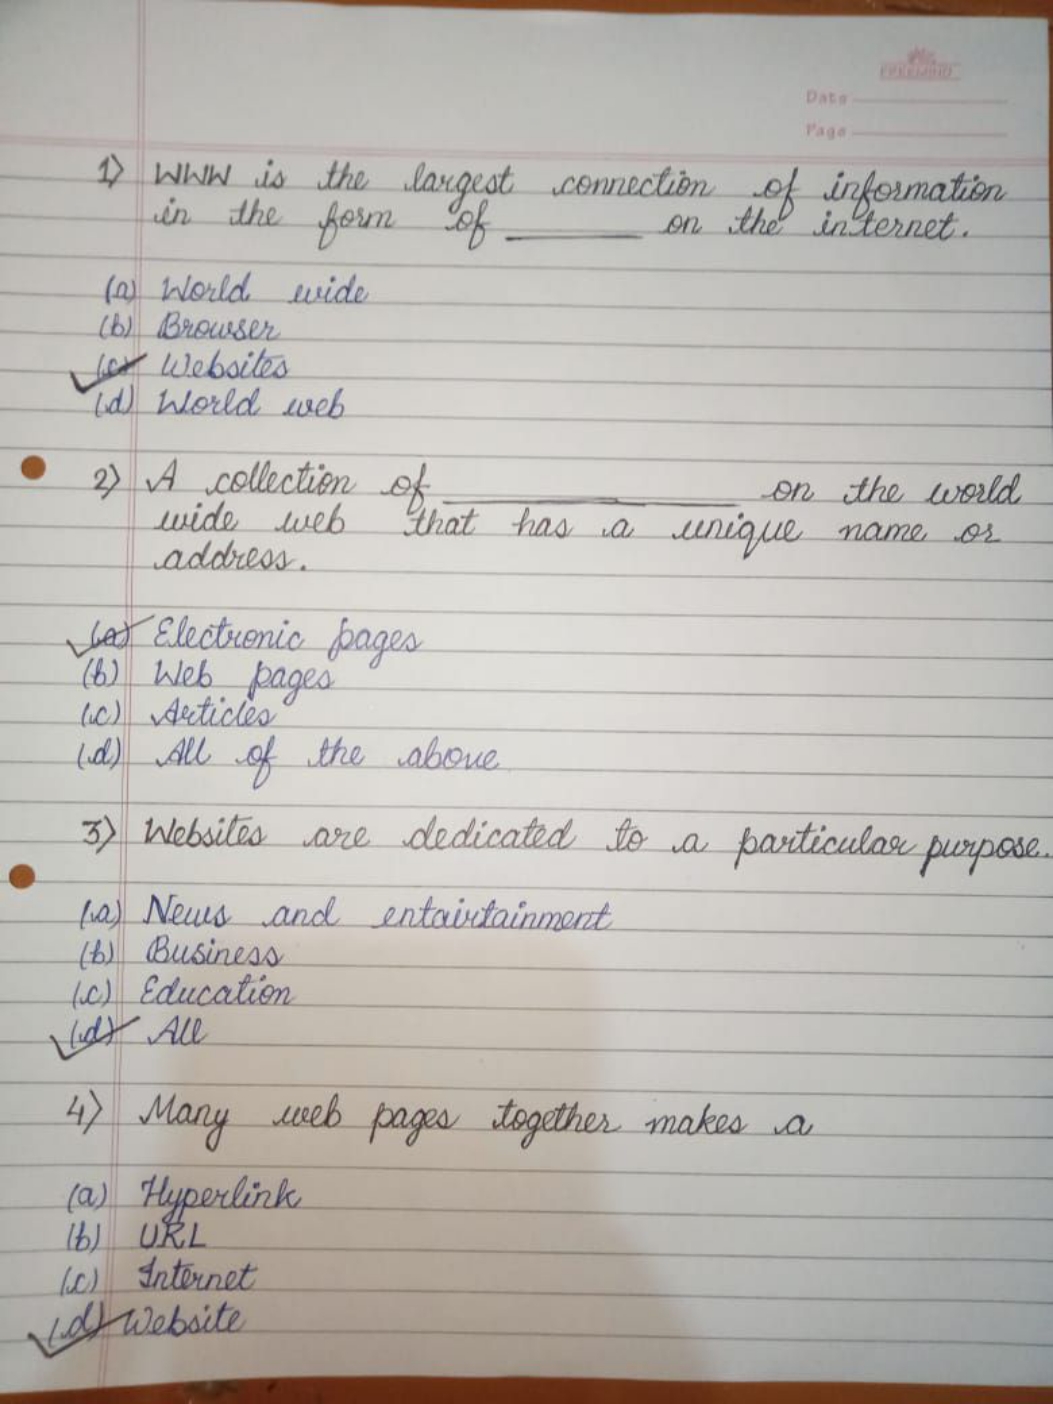 Date
Page
1) WWW is the largest connection of information
in the form of ______ on the internet.
(a) World wide
(b) Browser
(c) Websites
(d) World web
2) A collection of ____________ on the world
wide web that has a unique name or
address.
(a) Electronic pages
(b) Web pages
(c) Articles
(d) All of the above
3) Websites are dedicated to a particular purpose.
(a) News and entairtainment
(b) Business
(c) Education
(d) All
4) Many web pages together makes a
(a) Hyperlink
(b) URL
(c) Internet
(d) Website